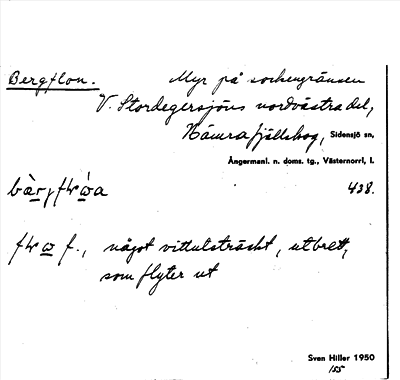 Bergflon. Myr på sockengränsen
V. Stordegersjöns nordvästra del,
fjällskog, Sidensjö sn,
Ångermanl. n. doms. tg., Västernorrl. l.
438.
något vittutsträckt, utbrett,
som flyter ut
Sven Hiller 1950
155